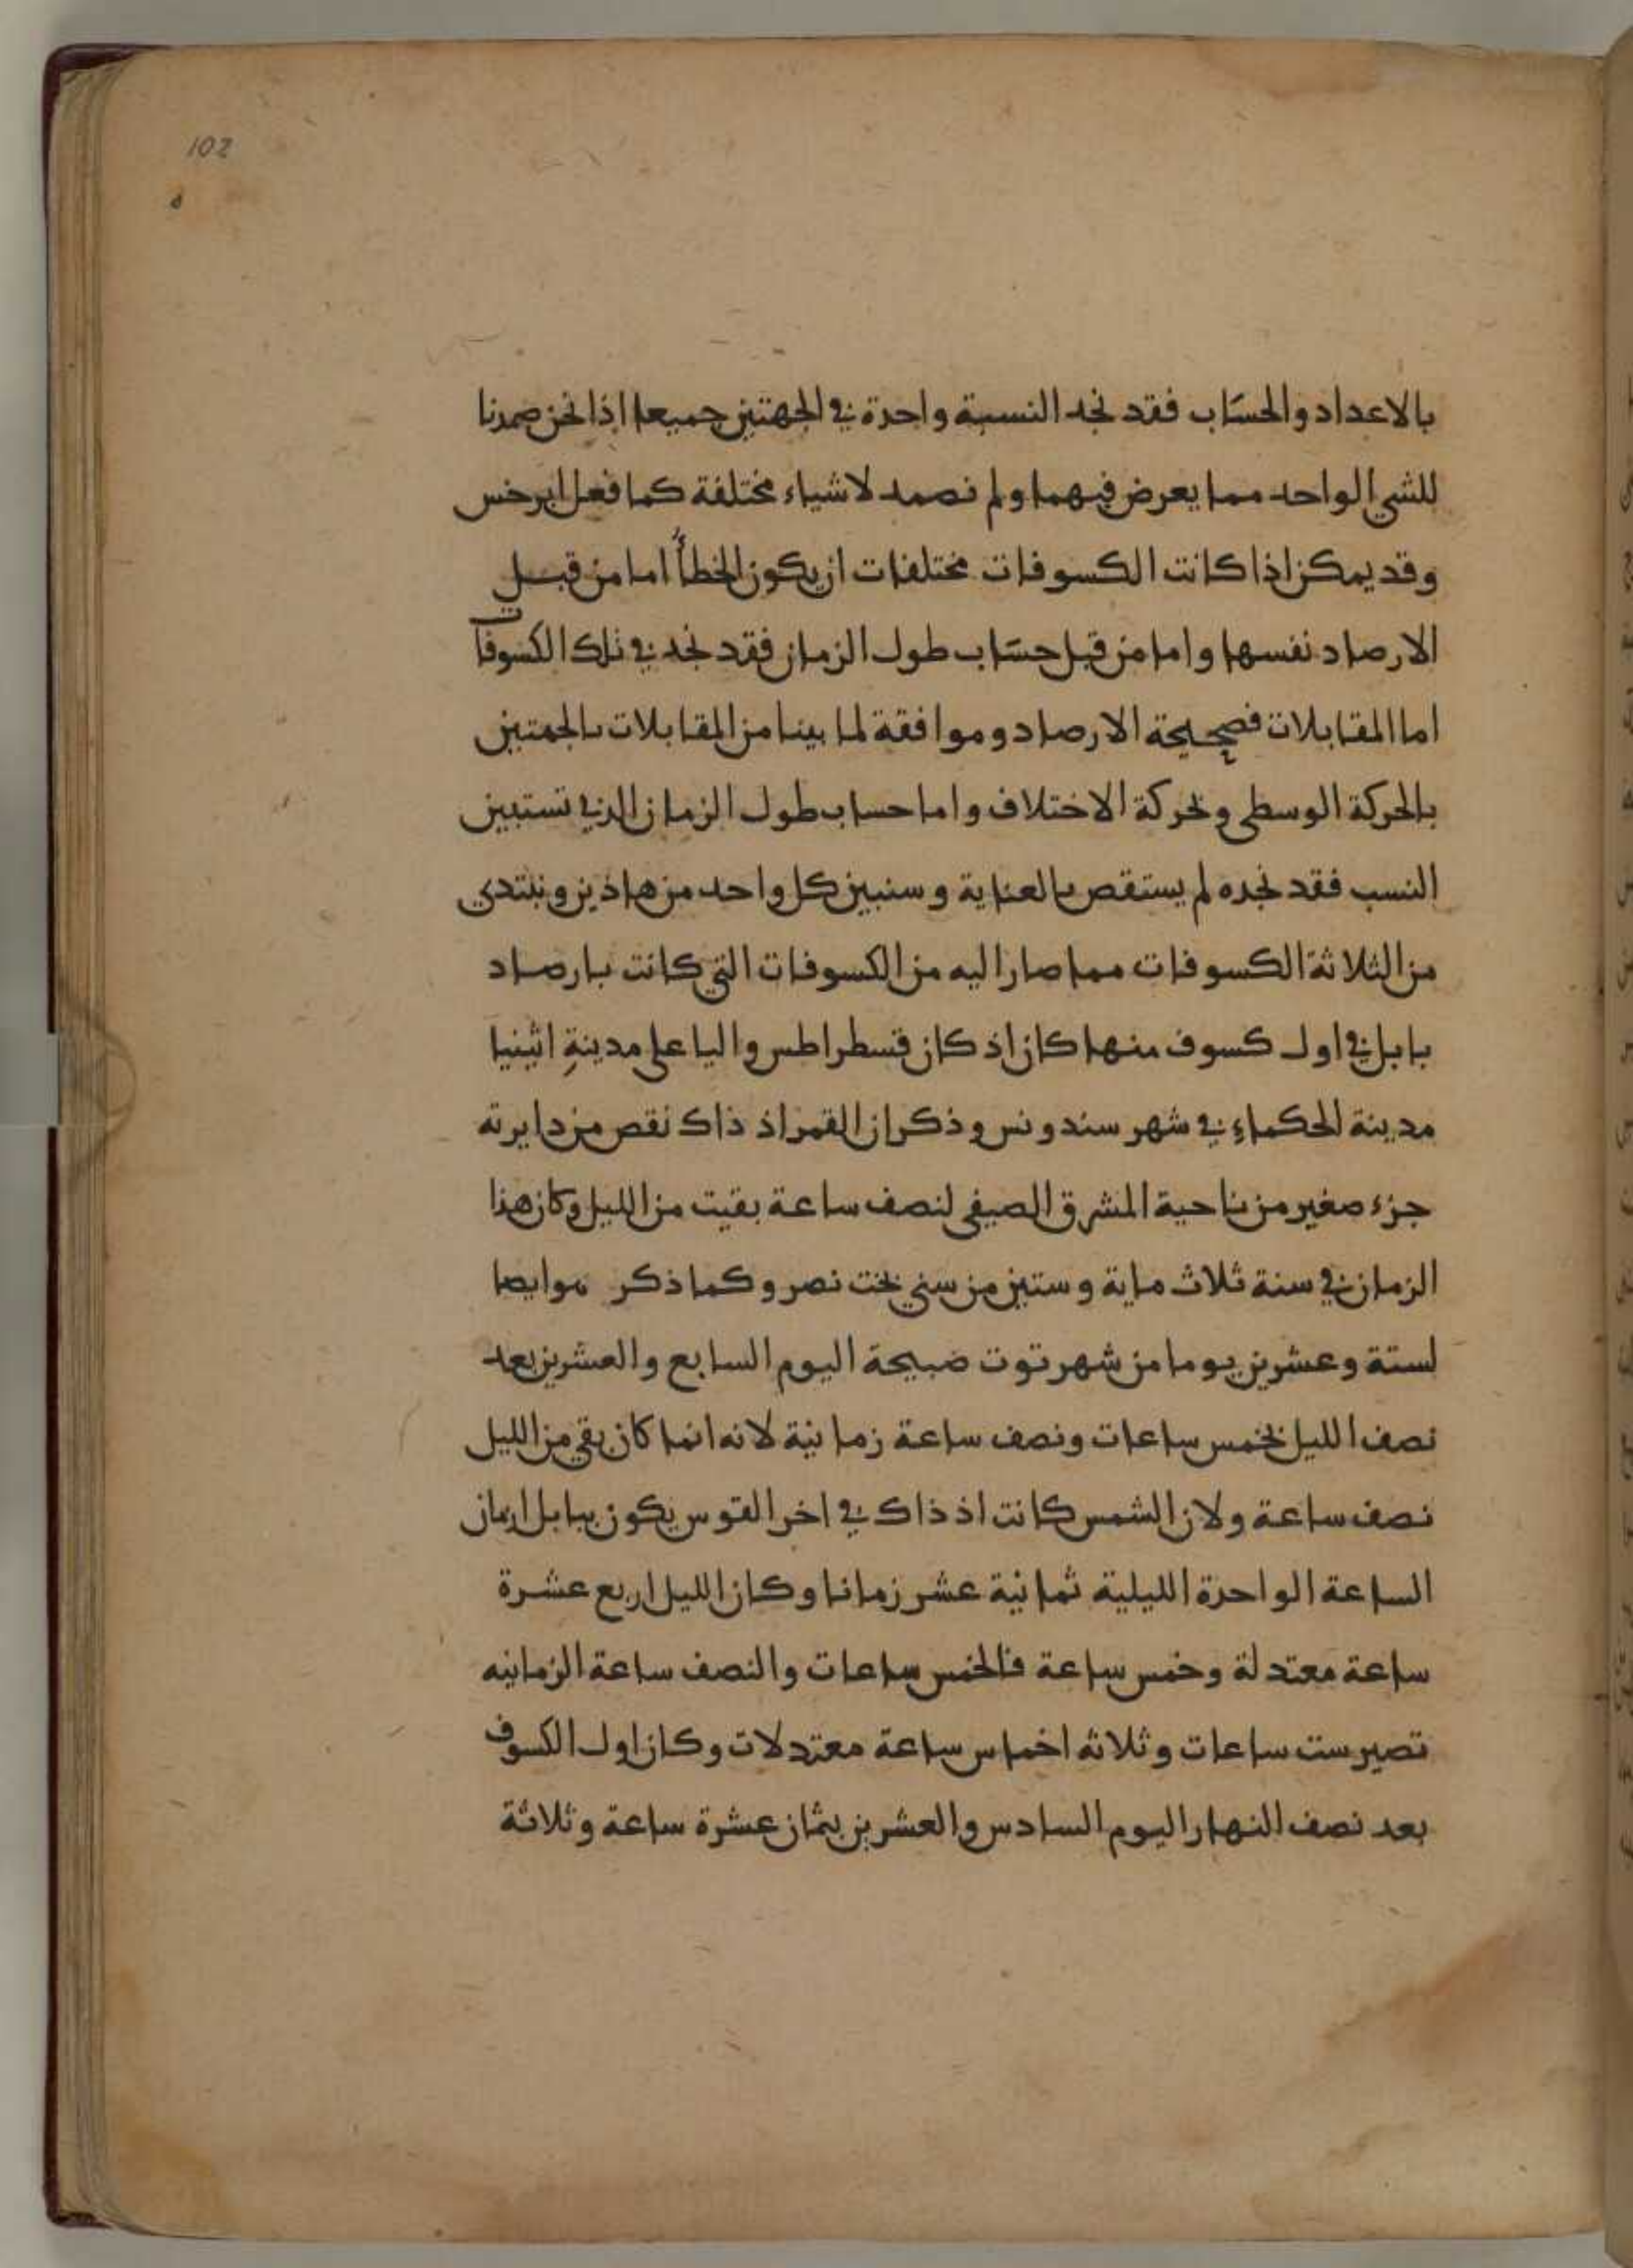 102
بالاعداد والحساب فقد نجد النسبة واحدة في الجهتين جميعا اذا نحن صمدنا
للشي الواحد مما يعرض فيهما ولم نصمد لاشياء مختلفة كما فعل ابرخس
وقد يمكن اذا كانت الكسوفات مختلفات ان يكون الخطأ اما من قبل
الارصاد نفسها واما من قبل حساب طول الزمان فقد نجد في تلك الكسوفات
اما المقابلات فصحيحة الارصاد وموافقة لما بينا من المقابلات بالجهتين
بالحركة الوسطى وبحركة الاختلاف واما حساب طول الزمان الذي تستبين
النسب فقد نجده لم يستقص بالعناية وسنبين كل واحد من هاذين ونبتدي
من الثلاثة الكسوفات مما صار اليه من الكسوفات التي كانت بارصاد
بابل في اول كسوف منها كان اذ كان قسطراطس واليا على مدينة اثينيا
مدينة الحكماء في شهر سندونس وذكر ان القمر اذ ذاك نقص من دايرته
جزء صغير من ناحية المشرق الصيفي لنصف ساعة بقيت من الليل وكان هذا
الزمان في سنة ثلاث ماية وستين من سني بخت نصر وكما ذكر هو ايضا
لستة وعشرين يوما من شهر توت صبيحة اليوم السابع والعشرين بعد
نصف الليل بخمس ساعات ونصف ساعة زمانية لانه انما كان بقي من الليل
نصف ساعة ولان الشمس كانت اذ ذاك في اخر القوس يكون ببابل ازمان
الساعة الواحدة الليلية ثمانية عشر زمانا وكان الليل اربع عشرة
ساعة معتدلة وخمس ساعة فالخمس ساعات والنصف ساعة الزمانيه
تصير ست ساعات وثلاثه اخماس ساعة معتدلات وكان اول الكسوف
بعد نصف النهار اليوم السادس والعشرين بثمان عشرة ساعة وثلاثة